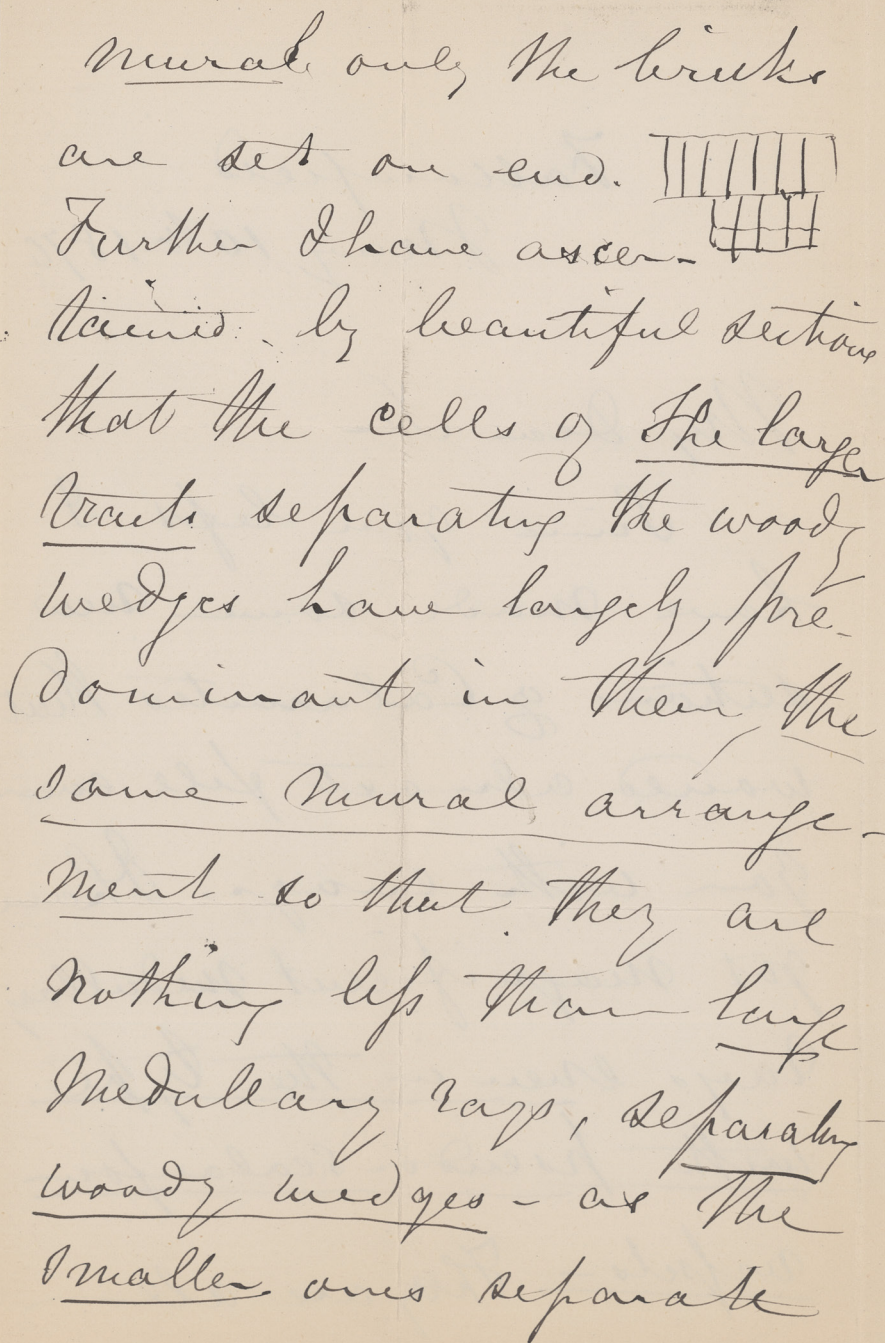 mural only the bricks
are set on end.
Further I have ascer-
tained by beautiful sections
that the cells of the larger
tracts separating the woody
wedges have largely pre-
dominant in them, the
same mural arrange-
ment so that they are
nothing less than large
Medullary rays, separating
woody wedges - as the
smaller ones separate